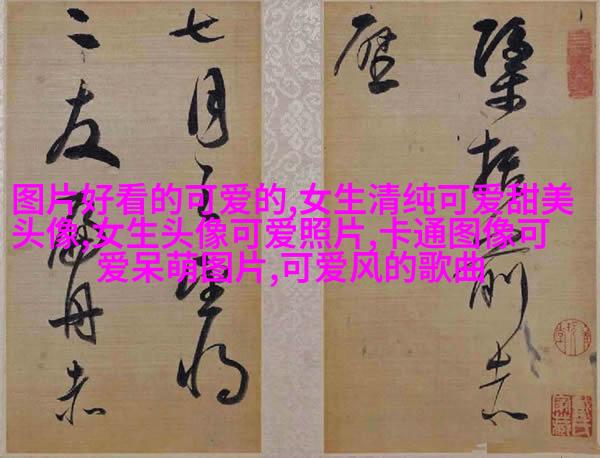 图片好看的可爱的,女生清纯可爱甜美
头像,女生头像可爱照片,卡通图像可
爱呆萌图片,可爱风的歌曲
括前赤
壁
七月望将
二友舟赤